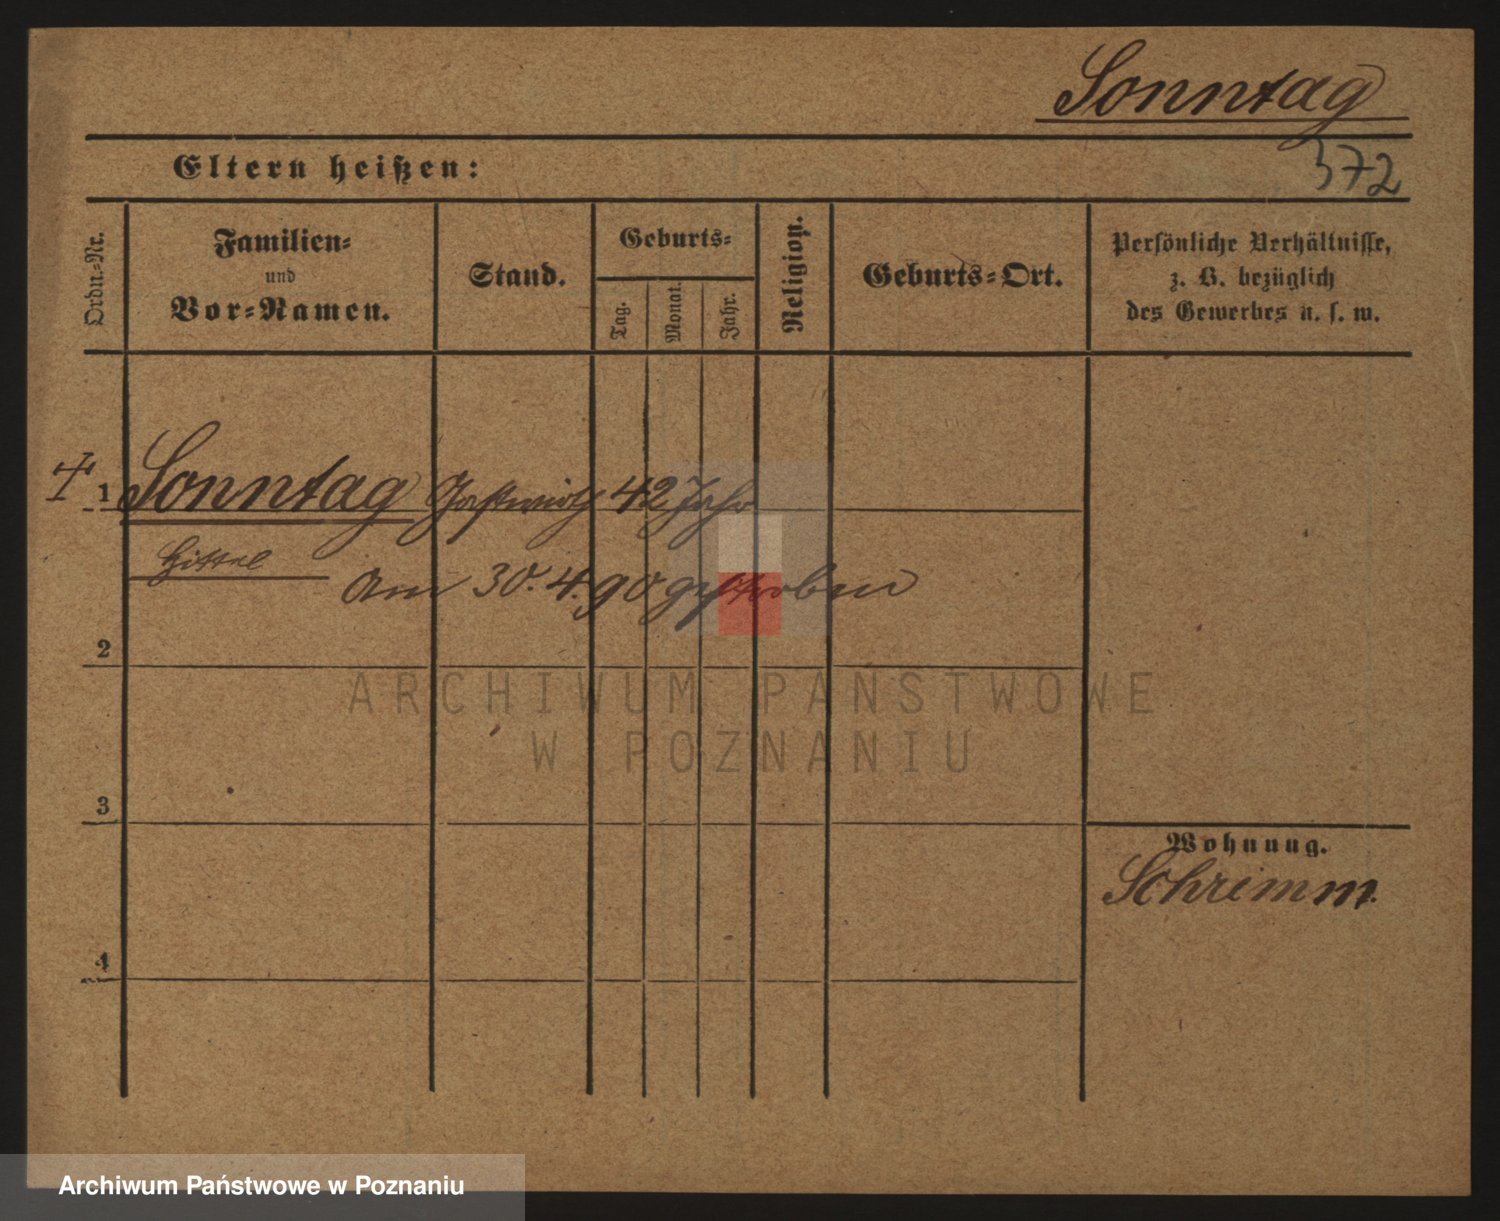 Sonntag
372
Eltern heißen:
Ordn.-Nr.
Familien-
und
Vor-Namen.
Stand.
Geburts-
Tag.
Monat.
Jahr.
Religion.
Geburts-Ort.
Persönliche Verhältnisse,
z. B. bezüglich
des Gewerbes u. s. w.
1 Sonntag Gastwirth 42 Jahr
am 30.4.90 gestorben
2
ARCHIWUM PAŃSTWOWE
W POZNANIU
3
Wohnung.
Schrimm.
4
Archiwum Państwowe w Poznaniu